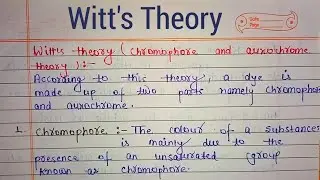 Witt's Theory
Witt's theory (chromophore and auxochrome
theory) :-
According to this theory, a dye is
made up of two parts namely chromophore
and auxochrome.
1. Chromophore :- The colour of a substances
is mainly due to the
presence of an unsaturated group
known as chromophore.